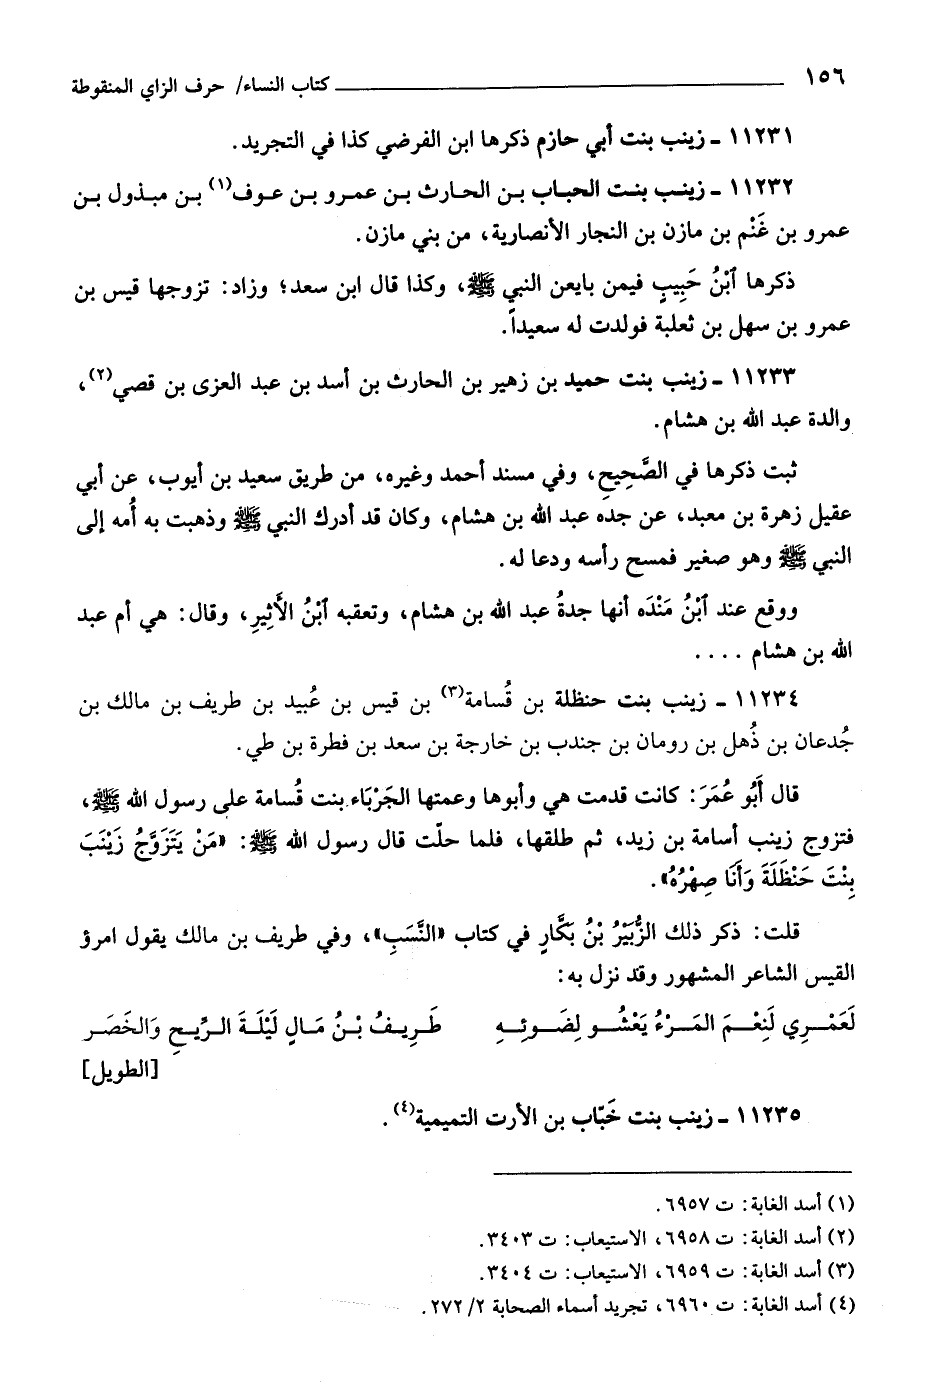 ١٥٦ ــــــــــ كتاب النساء/ حرف الزاي المنقوطة
١١٢٣١ ـ زينب بنت أبي حازم ذكرها ابن الفرضي كذا في التجريد.
١١٢٣٢ ـ زينب بنت الحباب بن الحارث بن عمرو بن عوف(١) بن مبذول بن
عمرو بن غَنْم بن مازن بن النجار الأنصارية، من بني مازن.
ذكرها ٱبْنُ حَبِيبٍ فيمن بايعن النبي ﷺ، وكذا قال ابن سعد؛ وزاد: تزوجها قيس بن
عمرو بن سهل بن ثعلبة فولدت له سعيداً.
١١٢٣٣ ـ زينب بنت حميد بن زهير بن الحارث بن أسد بن عبد العزى بن قصي(٢)،
والدة عبد الله بن هشام.
ثبت ذكرها في الصَّحِيحِ، وفي مسند أحمد وغيره، من طريق سعيد بن أيوب، عن أبي
عقيل زهرة بن معبد، عن جده عبد الله بن هشام، وكان قد أدرك النبي ﷺ وذهبت به أُمه إلى
النبي ﷺ وهو صغير فمسح رأسه ودعا له.
ووقع عند ٱبْنُ مَنْدَه أنها جدةُ عبد الله بن هشام، وتعقبه ٱبْنُ الأَثِيرِ، وقال: هي أم عبد
الله بن هشام . . . .
١١٢٣٤ ـ زينب بنت حنظلة بن قُسامة(٣) بن قيس بن عُبيد بن طريف بن مالك بن
جُدعان بن ذُهل بن رومان بن جندب بن خارجة بن سعد بن فطرة بن طي.
قال أَبُو عُمَرَ: كانت قدمت هي وأبوها وعمتها الجَرْبَاء بنت قُسامة على رسول الله ﷺ،
فتزوج زينب أسامة بن زيد، ثم طلقها، فلما حلّت قال رسول الله ﷺ: «مَنْ يَتَزَوَّجُ زَيْنَبَ
بِنْتَ حَنْظَلَةَ وَأَنَا صِهْرُهُ».
قلت: ذكر ذلك الزُّبَيْرُ بْنُ بَكَّارٍ في كتاب «النَّسَبِ»، وفي طريف بن مالك يقول امرؤ
القيس الشاعر المشهور وقد نزل به:
لَعَمْرِي لَنِعْمَ المَرْءُ يَعْشُو لِضَوئِهِ طَرِيفُ بْنُ مَالٍ لَيْلَةَ الرِّيحِ وَالخَصَرِ
[الطويل]
١١٢٣٥ ـ زينب بنت خَبّاب بن الأرت التميمية(٤).
(١) أسد الغابة: ت ٦٩٥٧.
(٢) أسد الغابة: ت ٦٩٥٨، الاستيعاب: ت ٣٤٠٣.
(٣) أسد الغابة: ت ٦٩٥٩، الاستيعاب: ت ٣٤٠٤.
(٤) أسد الغابة: ت ٦٩٦٠، تجريد أسماء الصحابة ٢/ ٢٧٢.